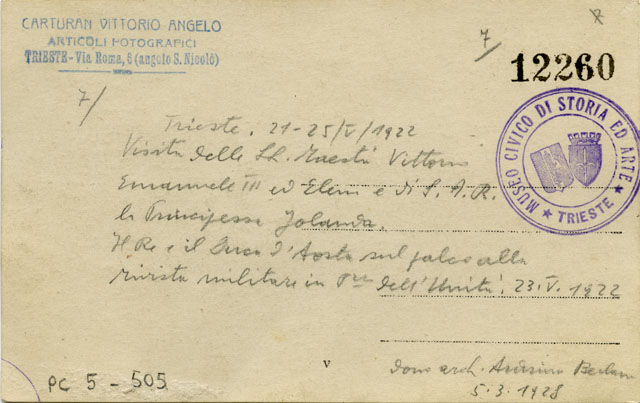 CARTURAN VITTORIO ANGELO
ARTICOLI FOTOGRAFICI
TRIESTE - Via Roma, 6 (angolo S. Nicolò)
7/
12260
MUSEO CIVICO DI STORIA ED ARTE
★ TRIESTE ★
7/
Trieste, 21-25/V/1922
Visita delle LL. Maestà Vittorio
Emanuele III ed Elena e di S. A. R.
la Principessa Jolanda.
Il Re e il Duca d'Aosta sul palco alla
rivista militare in dell'Unità. 23.V.1922
v
dono arch.
5.3.1928
PC 5 - 505